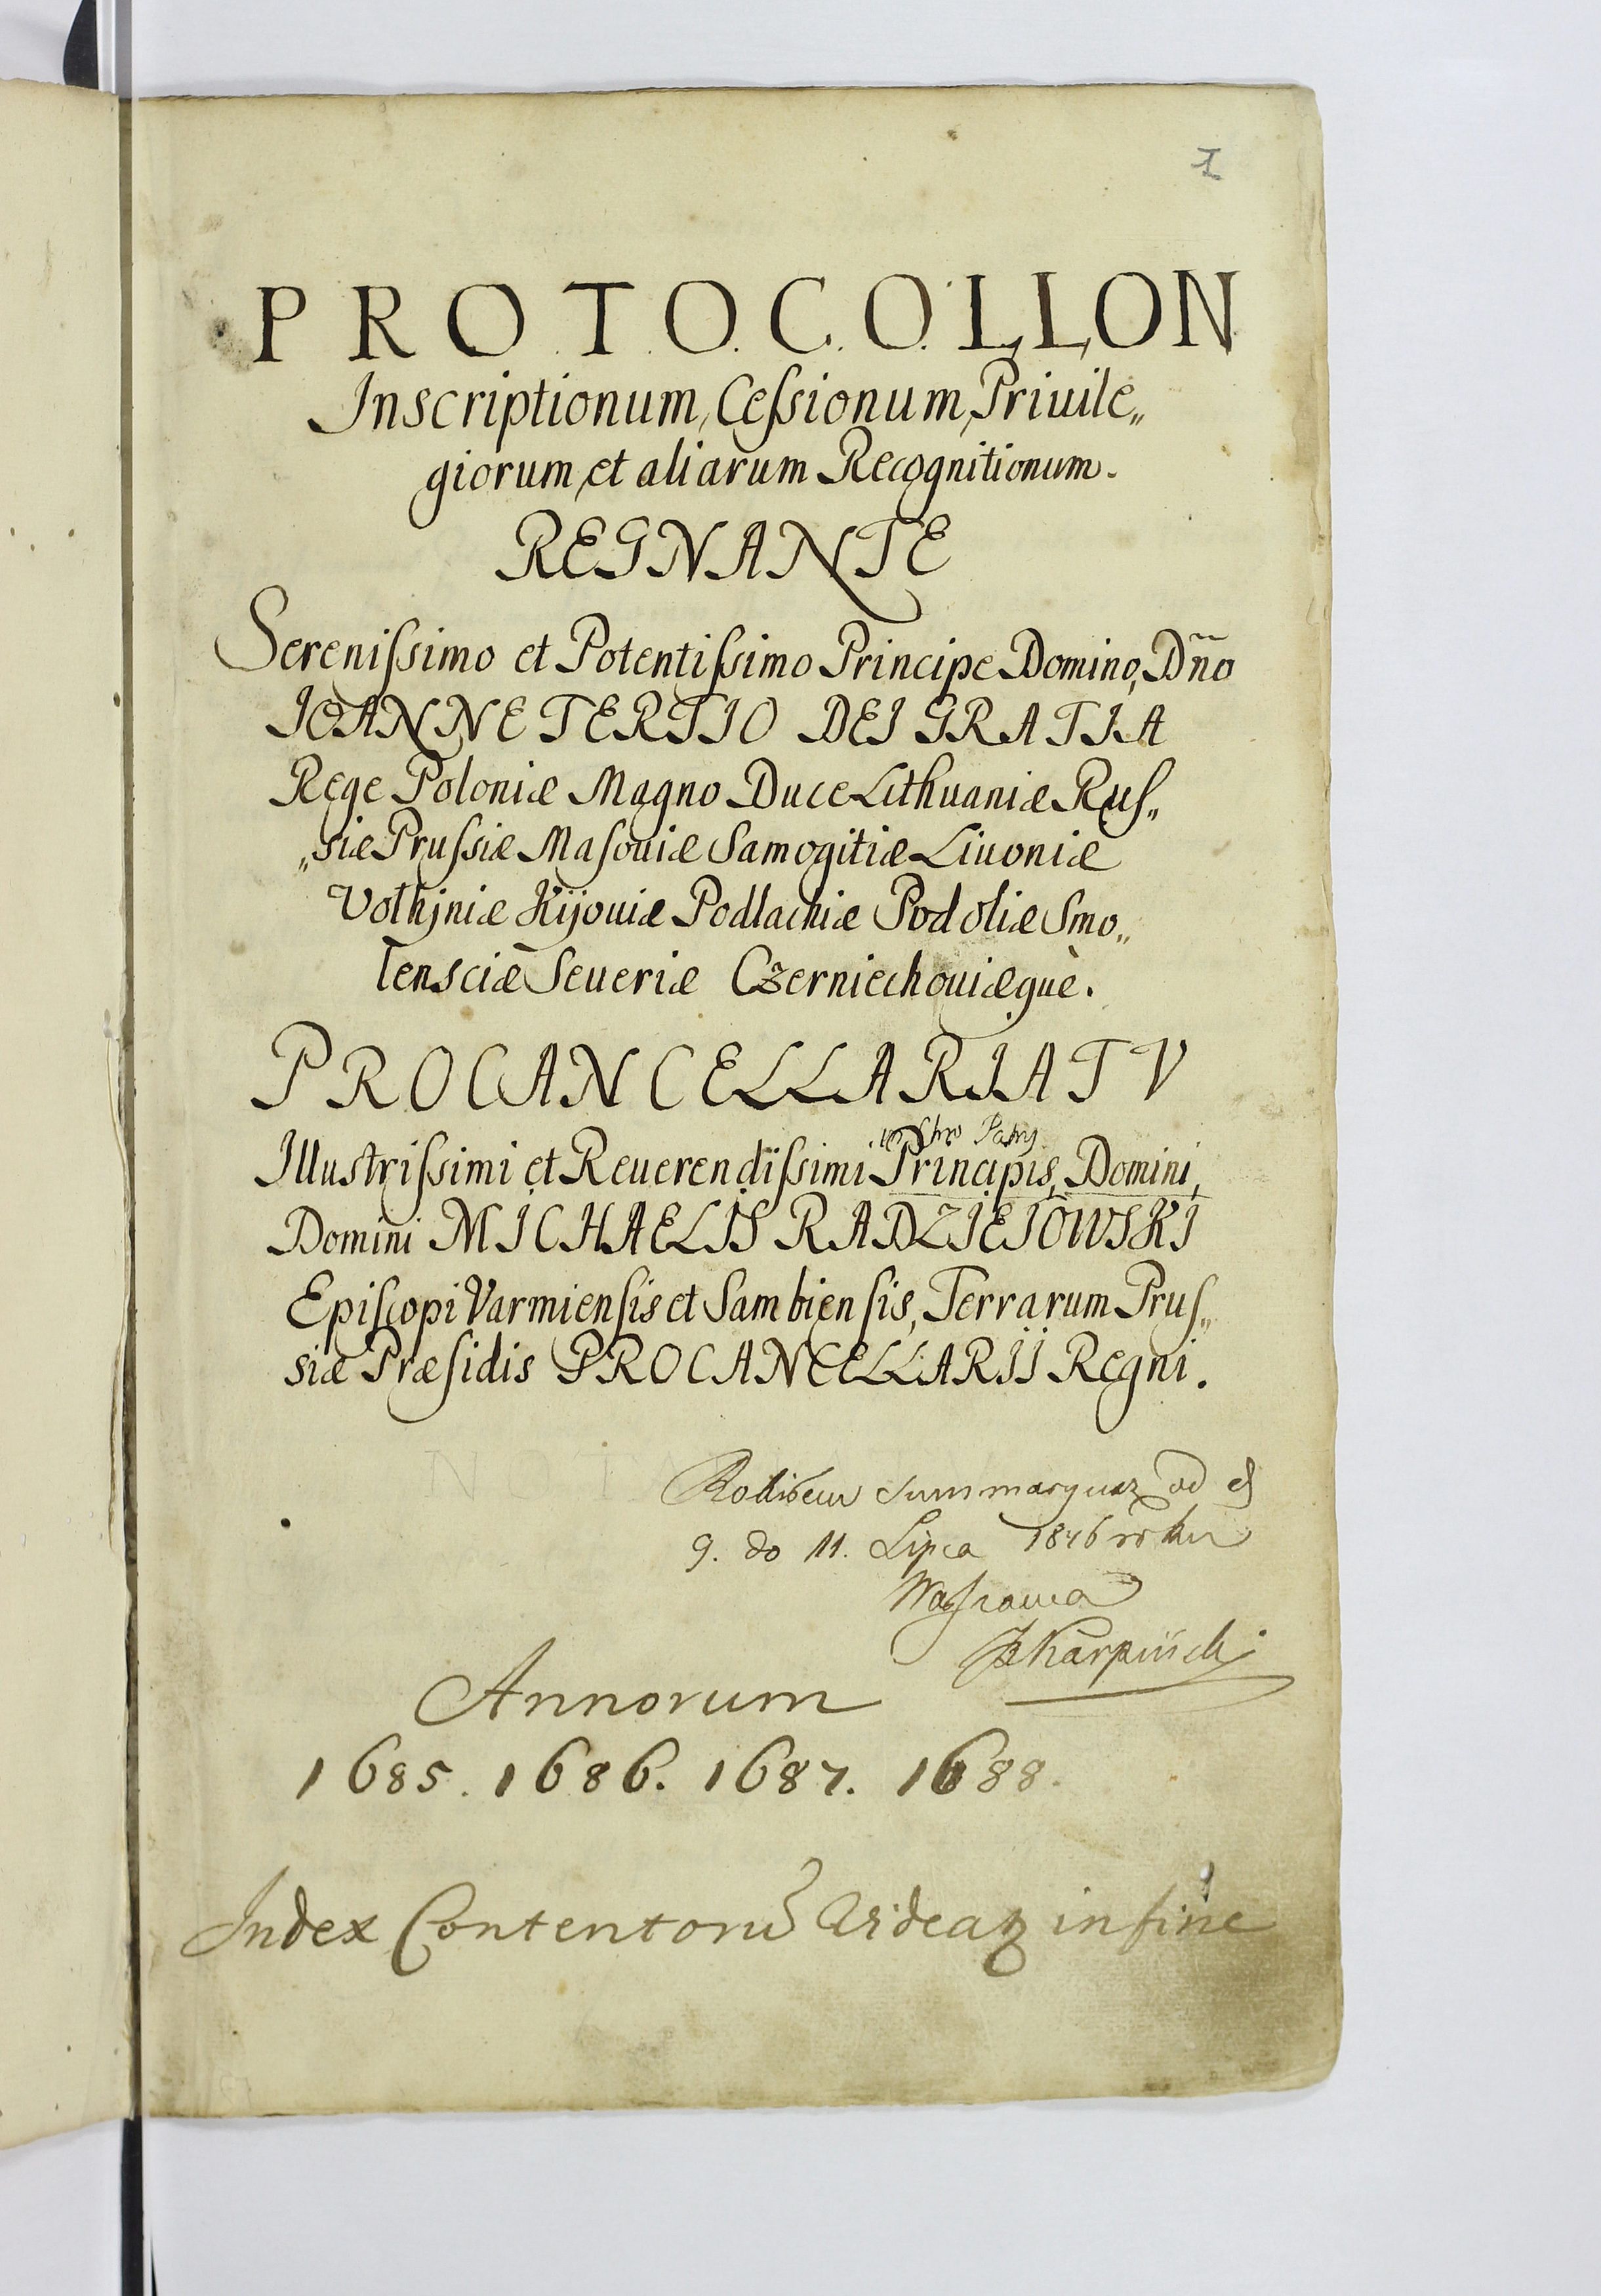 1
PROTOCOLLON
Inscriptionum, Ceſsionum, Priuile„
giorum et aliarum Recognitionum.
REGNANTE
Sereniſsimo et Potentiſsimo Principe Domino, Dn̄o
IOANNE TERTIO DEI GRATIA
Rege Poloniæ Magno Duce Lithuaniæ Ruſ„
„siæ Pruſsiæ Maſouiæ Samogitiæ Liuoniæ
Volhjniæ Kijouiæ Podlachiæ Podoliæ Smo„
lensciæ Seueriæ Czerniechouiæquè.
PROCANCELLARIATV
Illustriſsimi et Reuerendiſsimi Principis, Domini,
Domini MICHAELIS RADZIEJOWSKI
Epiſcopi Varmienſis et Sambienſis, Terrarum Pruſ„
siæ Præſidis PROCANCELLARII Regni.
9. do 11. Lipca 1846 roku
Annorum
1685. 1686. 1687. 1688.
Index Contentorū Videatꝛ in fine